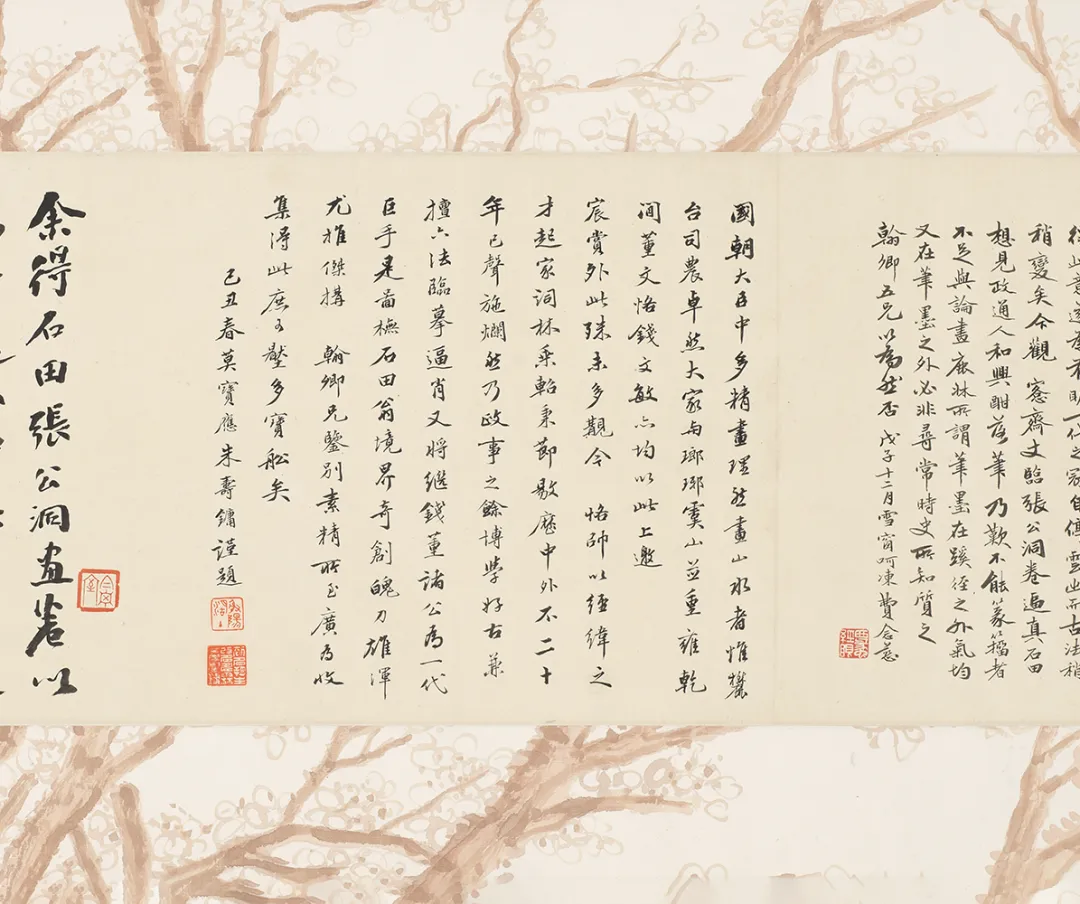 一代之冠自傳雲山而古法稍
稍變矣今觀 愙齋丈臨張公洞卷逼真石田
想見政通人和興酣落筆乃歎不能篆籀者
不足與論畫鹿牀所謂筆墨在蹊徑之外氣均
又在筆墨之外必非尋常時史所知質之
翰卿五兄以為然否 戊子十二月雪窗呵凍費念慈
國朝大臣中多精畫理然畫山水者惟麓
台司農卓然大家与瑯琊虞山並重雍乾
間董文恪錢文敏亦均以此上邀
宸賞外此殊未多觀今 恪帥以經緯之
才起家詞林乘軺秉節敭歷中外不二十
年已聲施爛然乃政事之餘博學好古兼
擅六法臨摹逼肖又將繼錢董諸公為一代
巨手是啚橅石田翁境界奇創魄力雄渾
尤推傑搆 翰卿兄鑒別素精所至廣為收
集得此庶可壓多寶船矣
己丑春莫寶應朱壽鏞謹題
余得石田張公洞畫卷以